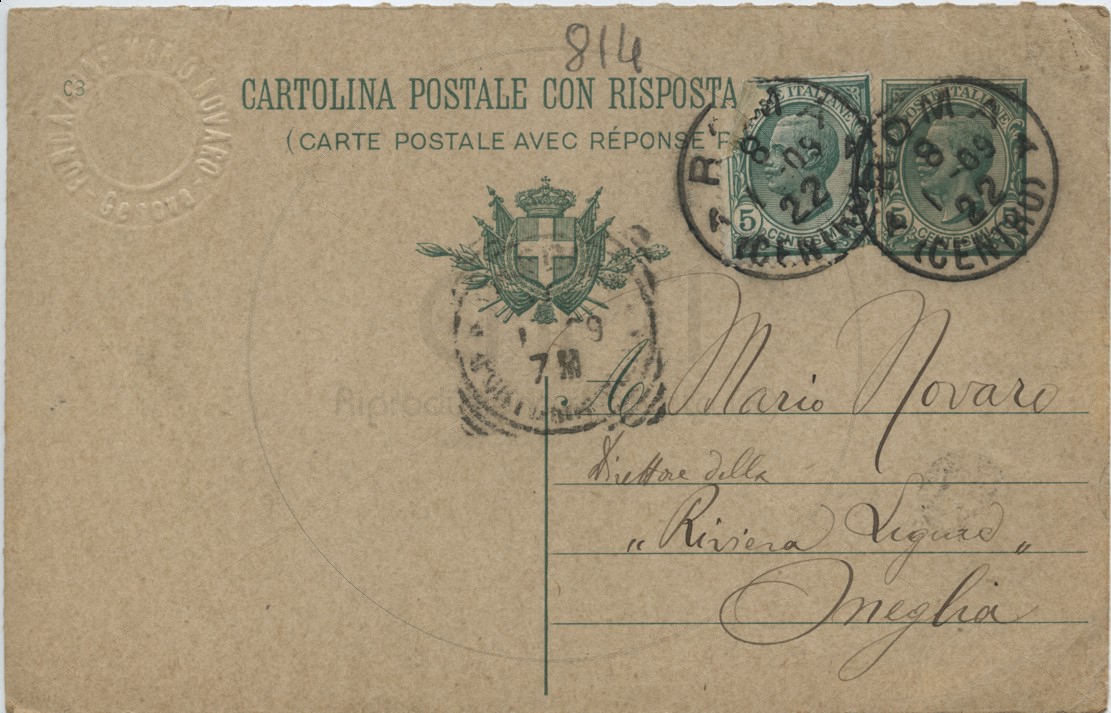 814
C3
FONDAZIONE MARIO NOVARO - Genova
CARTOLINA POSTALE CON RISPOSTA
(CARTE POSTALE AVEC RÉPONSE P
POSTE ITALIANE
5 CENTESIMI
POSTE ITALIANE
5 CENTESIMI 5
ROMA
8 1 -09
22
(CENTRO)
ROMA
8 1 -09
22
(CENTRO)
09
7 M
A Mario Novaro
Direttore della
„ Riviera Ligure „
Oneglia